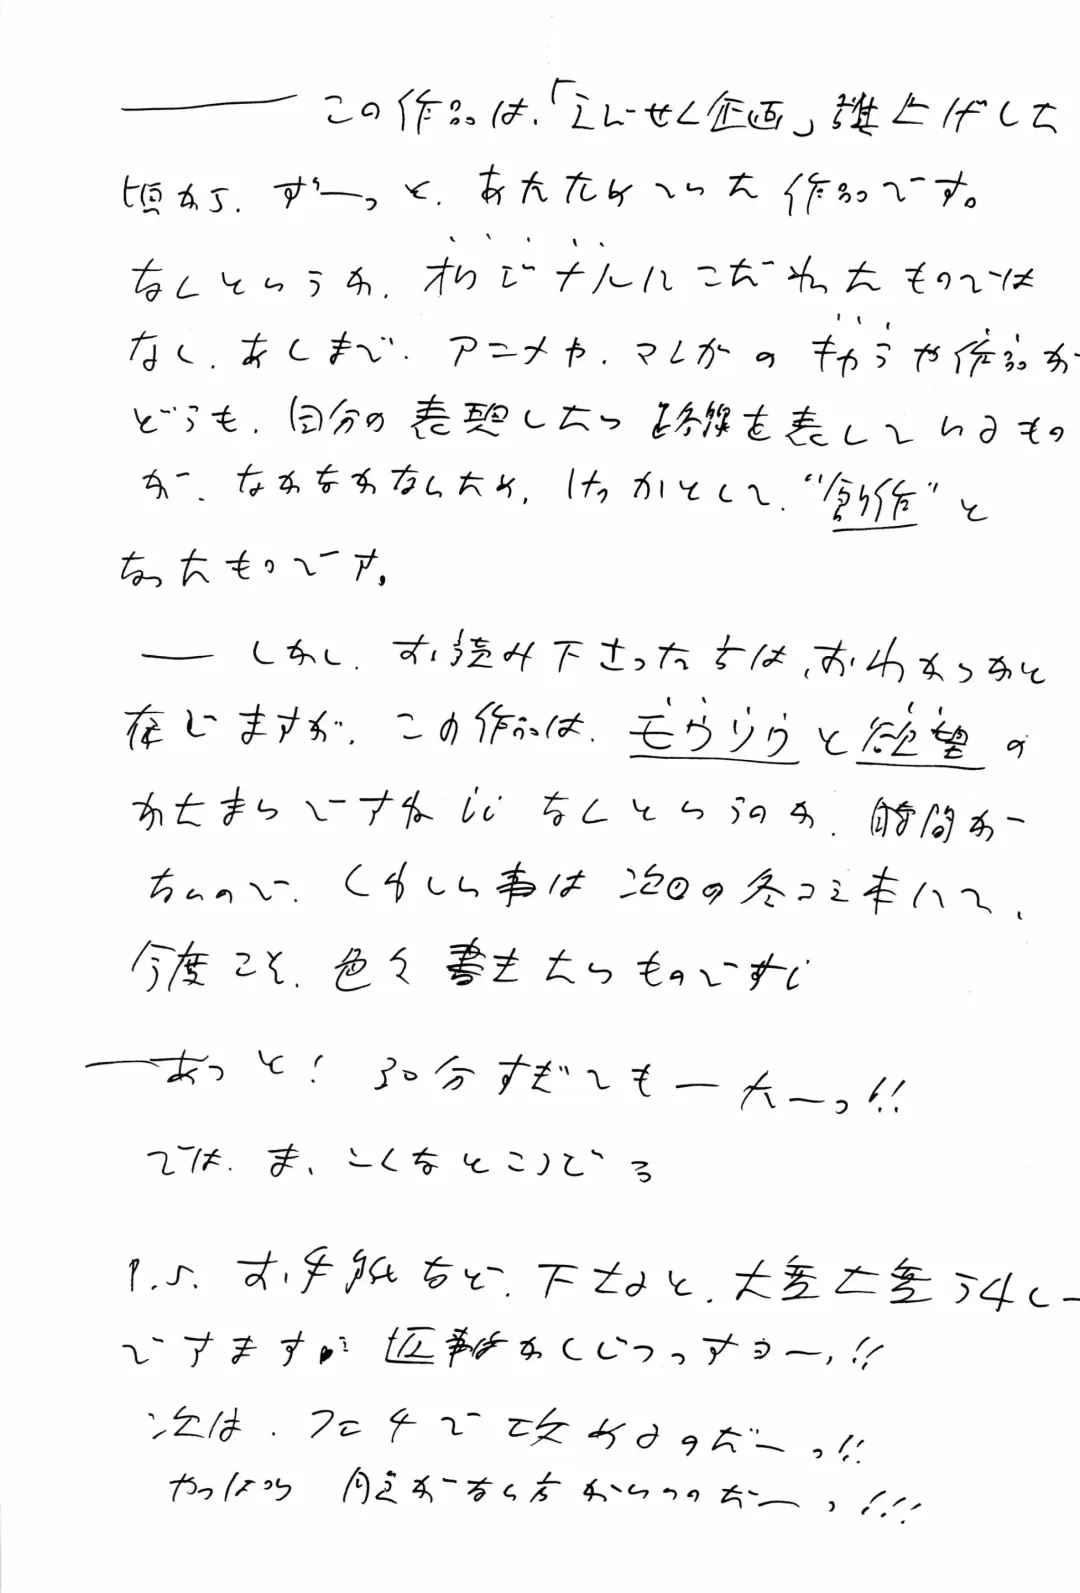 ── この作品は、「えんせく企画」旗上げした
頃から、ずーっと、あたためていた作品です。
なんというか、オリジナルにこだわったものでは
なく、あくまで、アニメや、マンガのキャラや作品が
どうも、自分の表現したい路線を表しているもの
が、なかなかないため、けっかとして、“創作”と
なったものです。
── しかし、お読み下さった方は、おわかりかと
存じますが、この作品は、モウソウと欲望の
かたまりですね!! なんというのか、時間が
ないので、くわしい事は次回の冬コミ本にて、
今度こそ、色々書きたいものですし
──あっと! 30分すぎても一大ーっ!!
では、ま、こんなところで
P.S. お手紙など、下さると、大変大変うれしー
です 返事はかくじつっすヨー、!!
次は、フェチで攻めるのだーっ!!
やっぱり 目